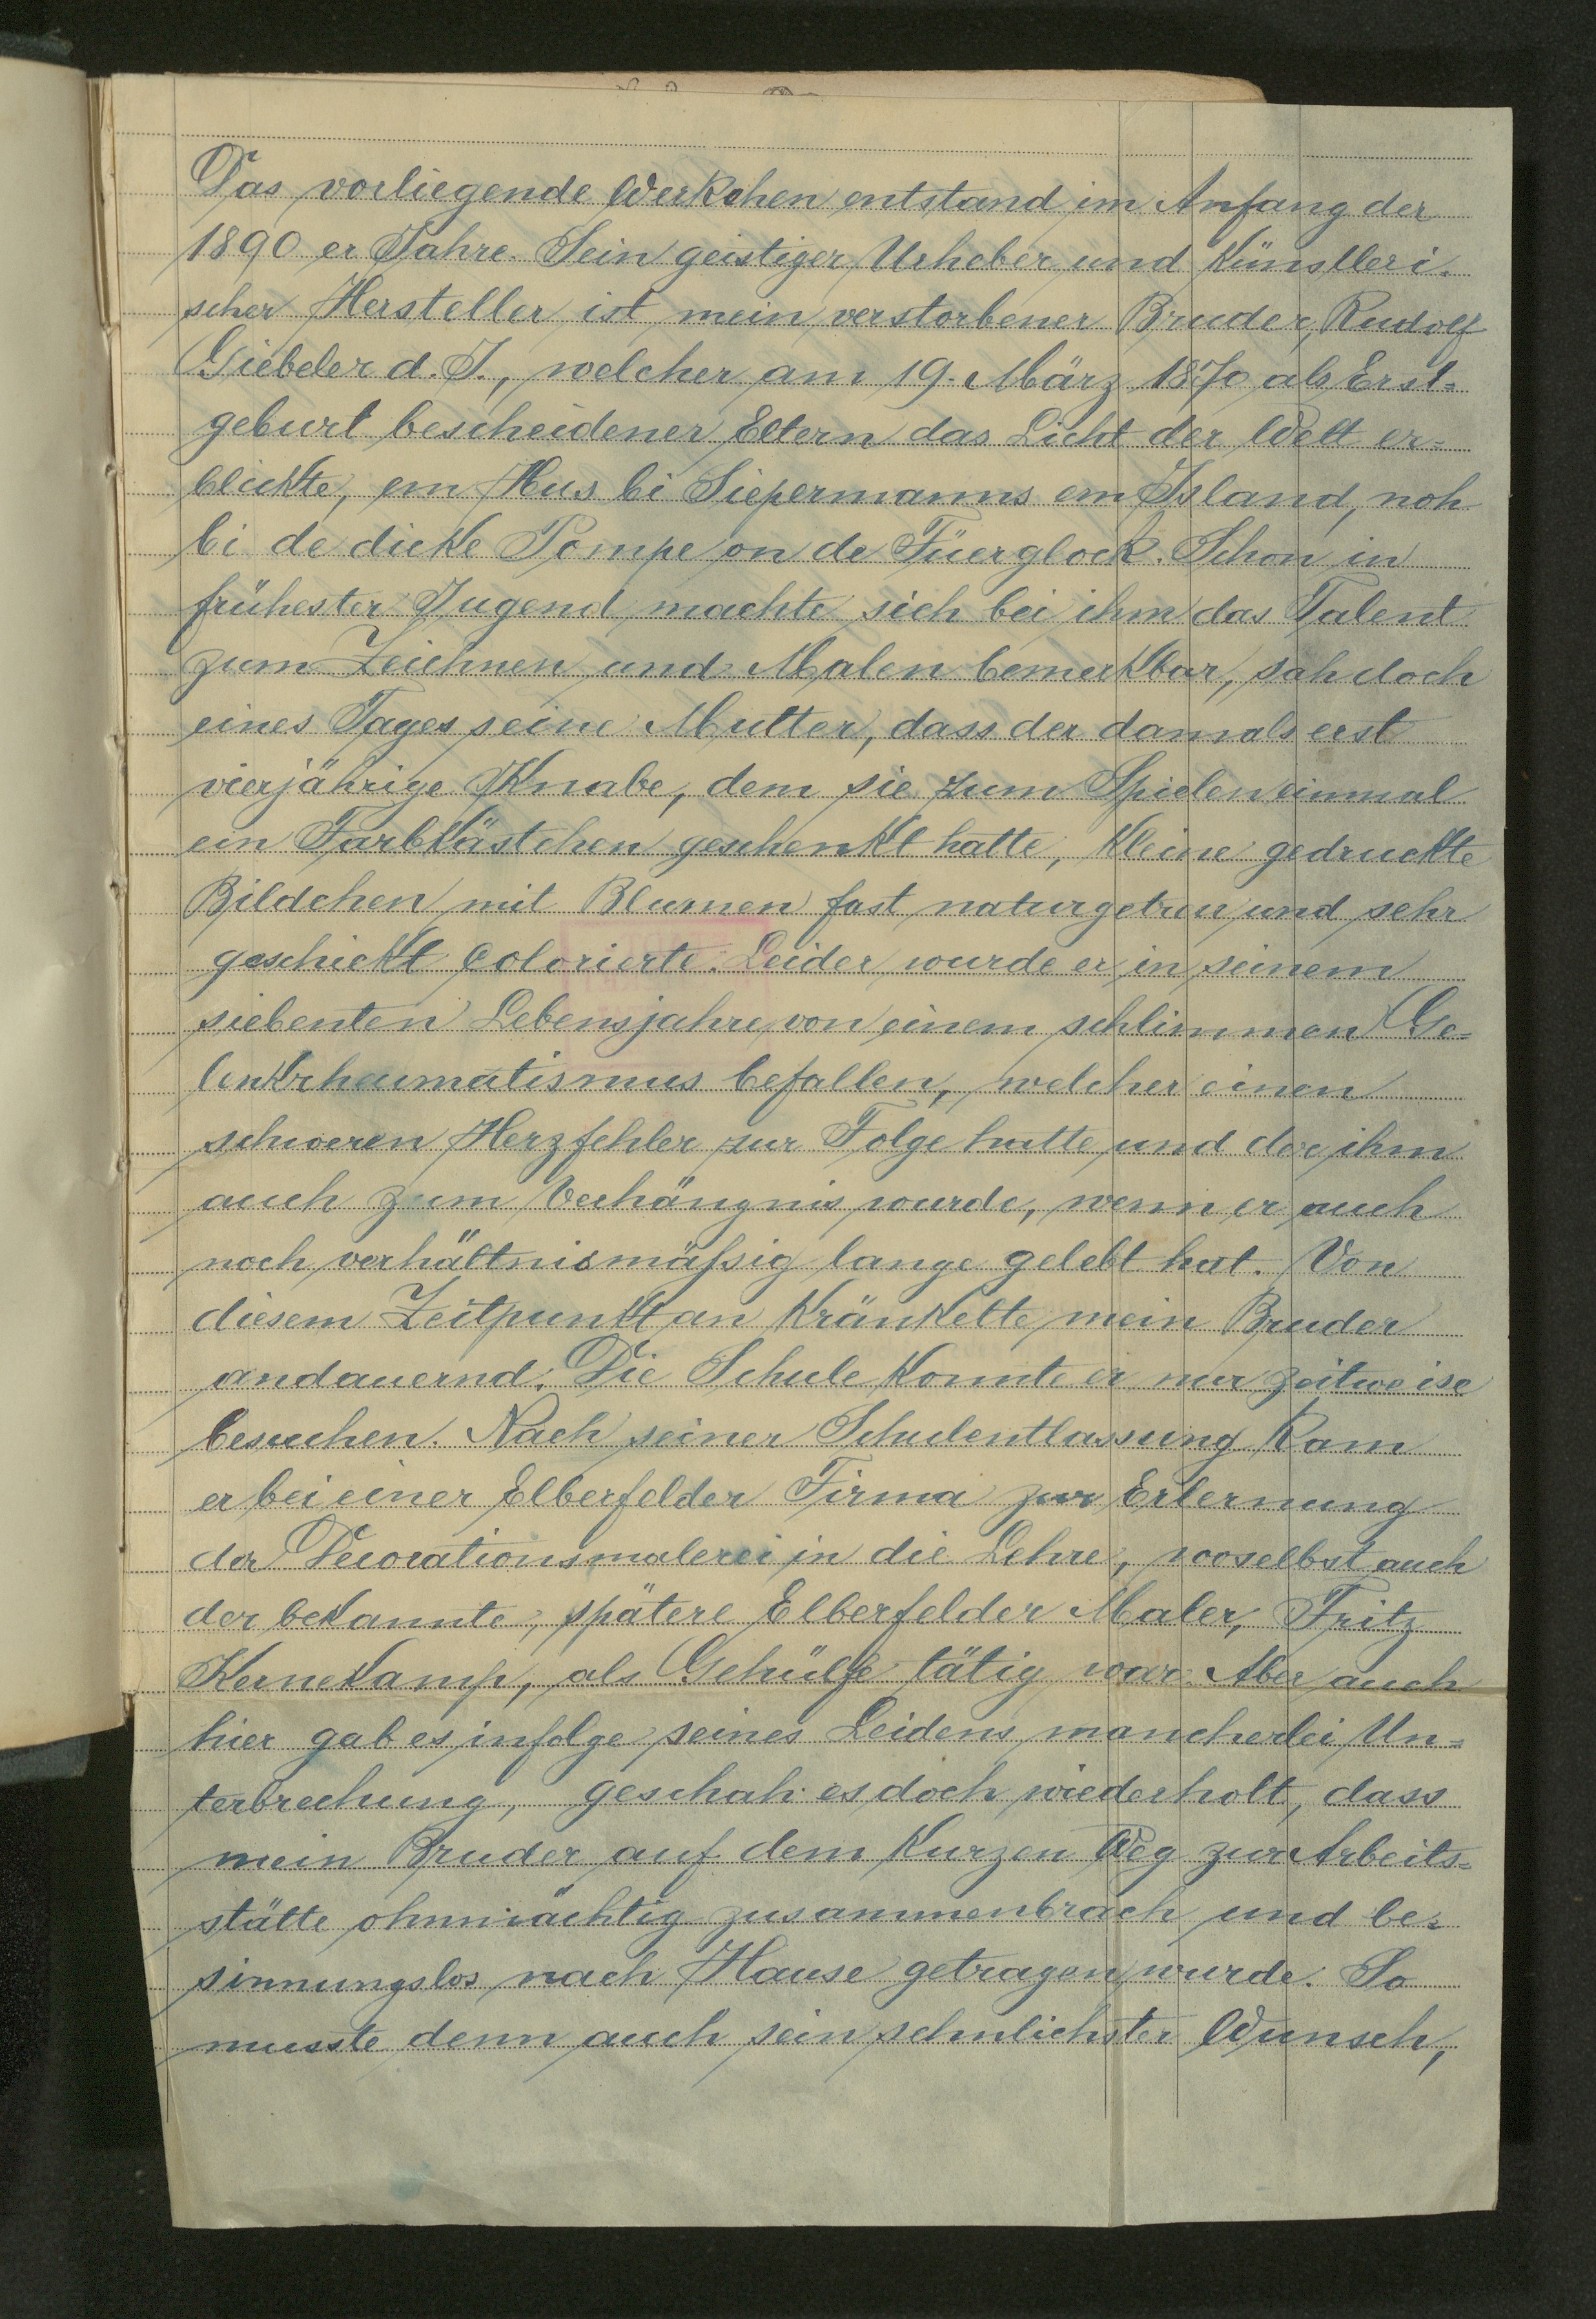 Das vorliegende Werkchen entstand im Anfang der
1890 er Jahre. Sein geistiger Urheber und künstleri-
scher Hersteller ist mein verstorbener Bruder, Rudolf
Giebeler d. J., welcher am 19. März 1870 als Erst=
geburt bescheidener Eltern das Licht der Welt er=
blickte, em Hus bi Siepermanns em Island, noh
bi de dicke Pompe on de Füerglock. Schon in
frühester Jugend machte sich bei ihm das Talent
zum Zeichnen und Malen bemerkbar, sah doch
eines Tages seine Mutter, dass der damals erst
vierjährige Knabe, dem sie zum Spielen einmal
ein Farbkästchen geschenkt hatte, kleine gedruckte
Bildchen mit Blumen fast naturgetreu und sehr
geschickt colorierte. Leider wurde er in seinem
siebenten Lebensjahre von einem schlimmen Ge=
lenkrheumatismus befallen, welcher einen
schweren Herzfehler zur Folge hatte und der ihm
auch zum Verhängnis wurde, wenn er auch
noch verhältnismäßig lange gelebt hat. Von
diesem Zeitpunkt an kränkelte mein Bruder
andauernd. Die Schule konnte er nur zeitweise
besuchen. Nach seiner Schulentlassung kam
er bei einer Elberfelder Firma zur Erlernung
der Decorationsmalerei in die Lehre, wooselbst auch
der bekannte, spätere Elberfelder Maler, Fritz
Kernekamp, als Gehülfe tätig war. Aber auch
hier gab es infolge seines Leidens mancherlei Un=
terbrechung, geschah es doch wiederholt, dass
mein Bruder auf dem kurzen Weg zur Arbeits=
stätte ohnmächtig zusammenbrach und be=
sinnungslos nach Hause getragen wurde. So
musste denn auch sein sehnlichster Wunsch,